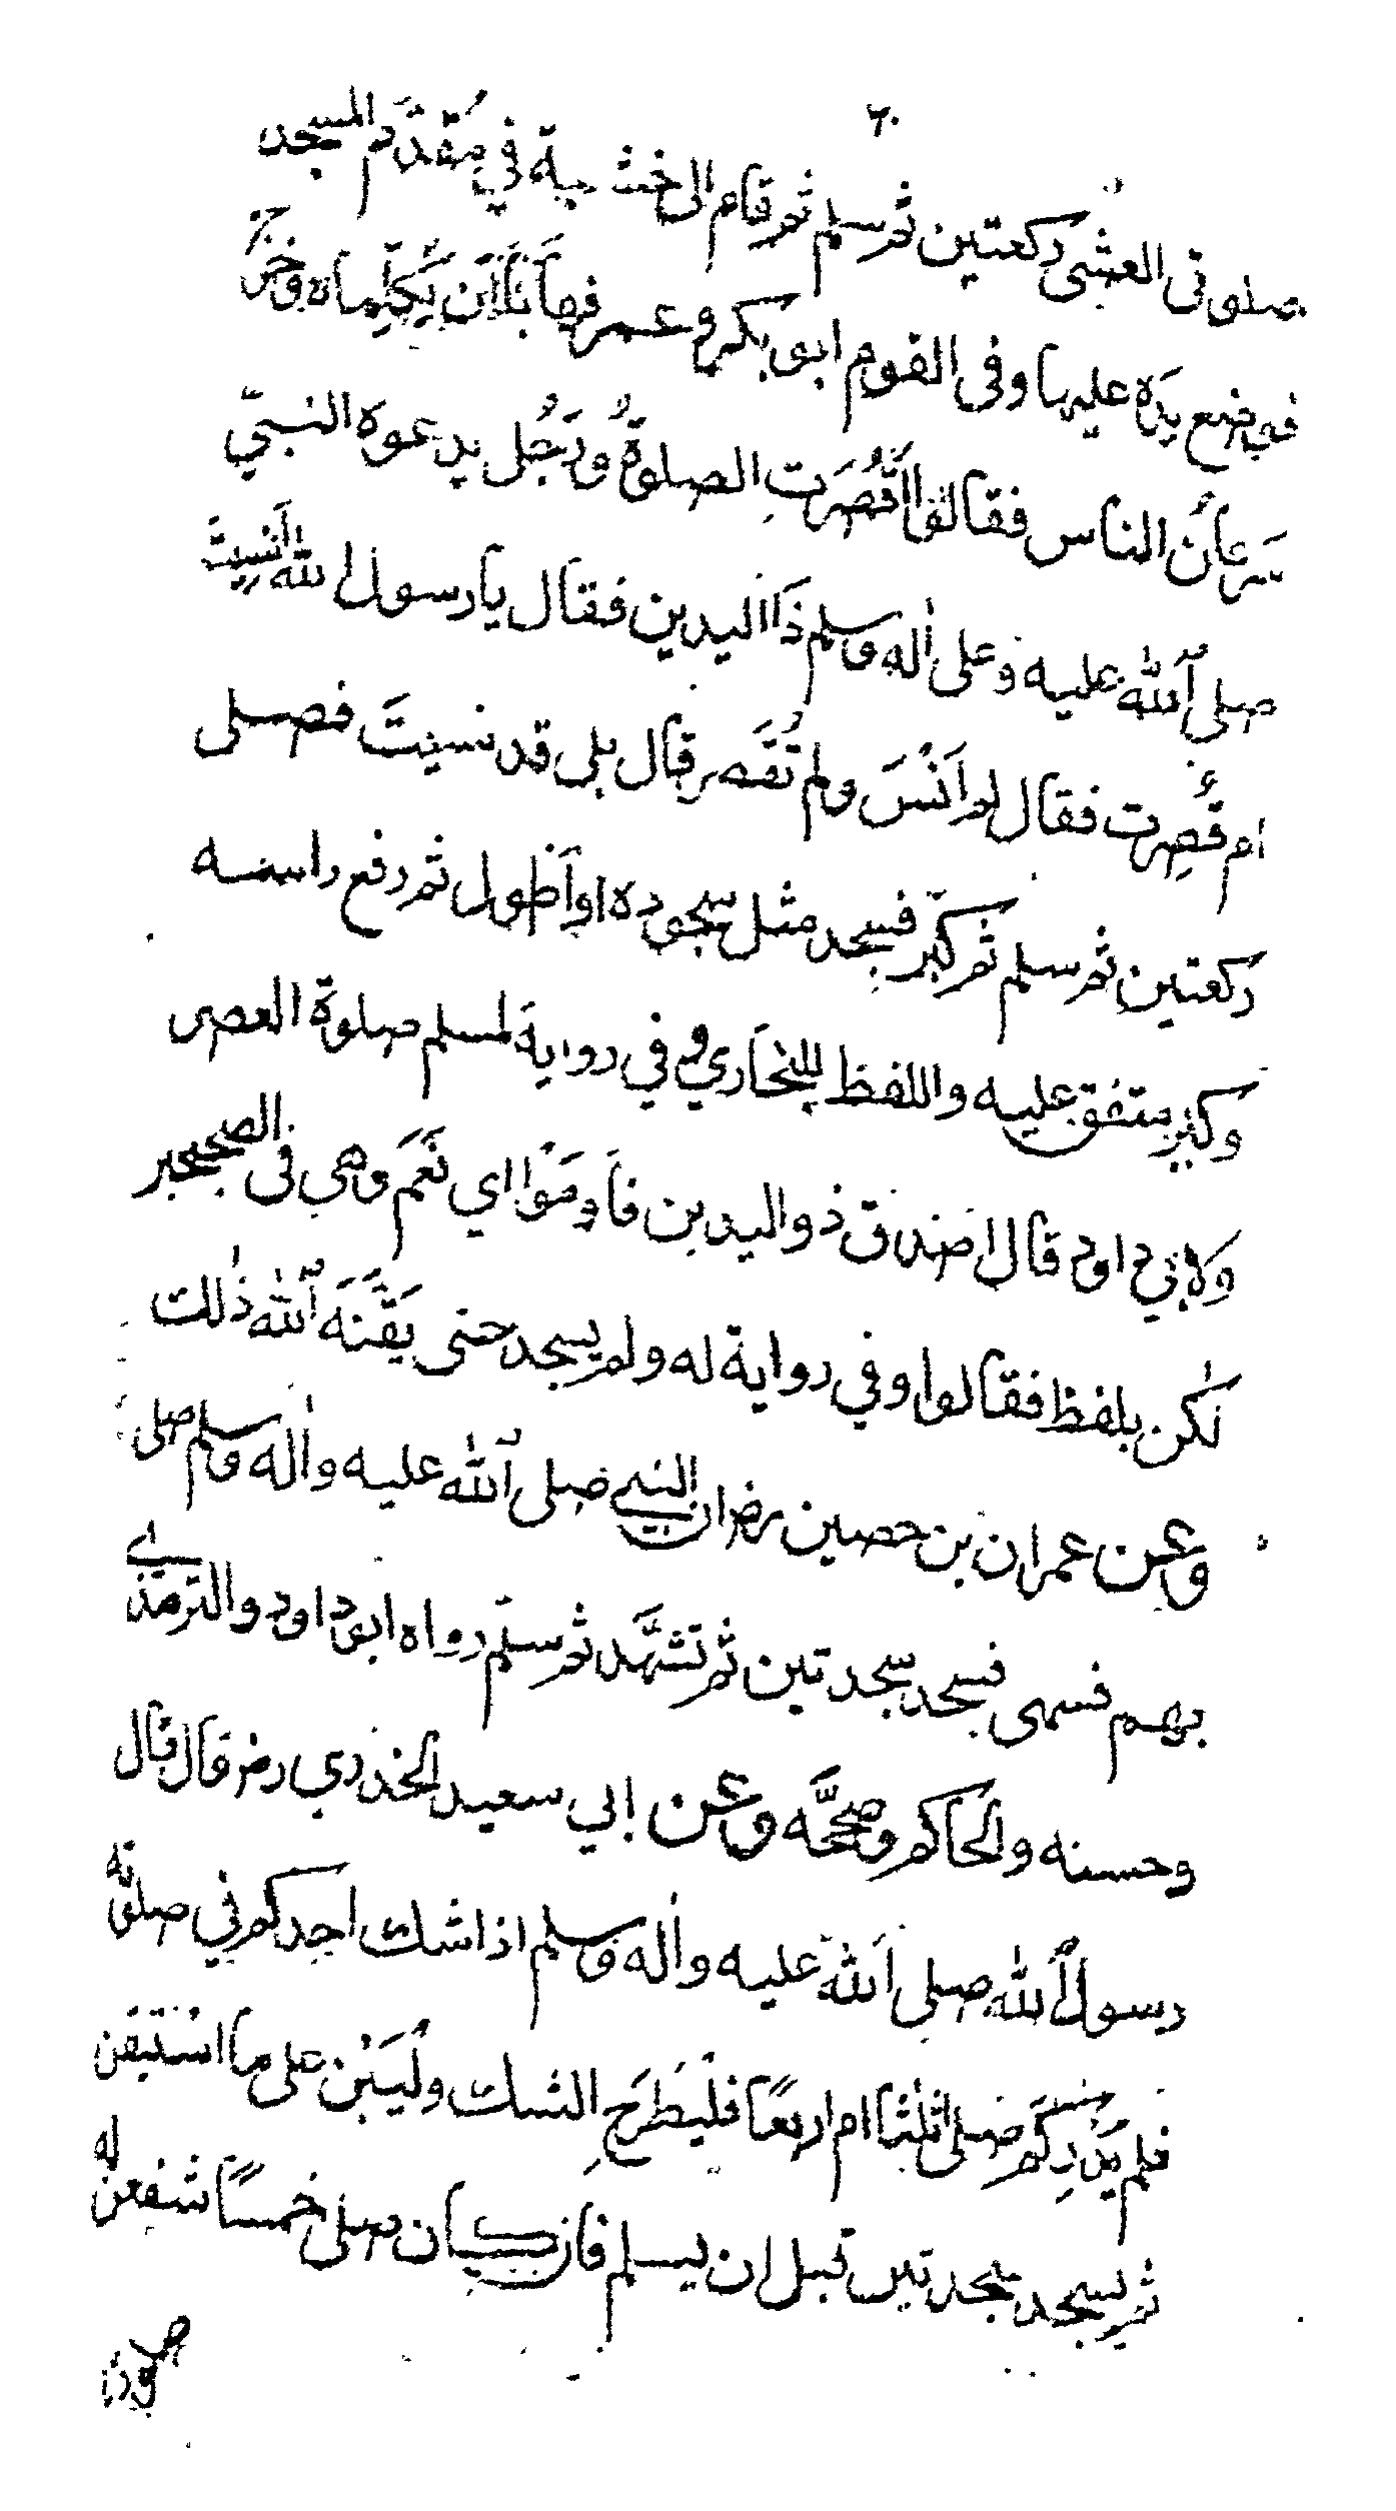 ٦٠
صلوتى العشى ركعتين ثم سلم ثم قام الى خشبة في مُقَدَّم المسجد
فوضع يَدَه عليها وفى القوم ابو بكر وعمر فهابَا اَن يُكَلِّماه وخرج
سَرعَانُ الناس فقالوا اَقُصِرَتِ الصلوةُ ورَجُل يدعوه النبيّ
صلى اللّٰه عليه وعلى اٰله وسلم ذَا اليدين فقال يا رسول اللّٰه اَنَسِيتَ
ام قُصِرت فقال لم اَنْسَ ولم تُقْصَر قال بلى قد نسيتَ فصلى
ركعتين ثم سلم ثم كبّر فسجد مثل سجوده او اَطول ثم رفع راسه
وكبّر متفق عليه واللفظ للبخاري وفي رواية لمسلم صلوة العصر
ولابي داود قال اصدق ذو اليدين فاَومَوْا اي نَعَم وهي فى الصحيحين
لٰكن بلفظ فقالوا وفي رواية له ولم يسجد حتى يَقَّنَهُ اللّٰه ذٰلك
وعن عمران بن حصين رض ان النبي صلى اللّٰه عليه واٰله وسلم صلى
بهم فسهى فسجد سجدتين ثم تشهَّد ثم سلّم رواه ابو داود والترمذي
وحسنه والحاكم وصحَّحه وعن ابي سعيد الخدري رض قال قال
رسول اللّٰه صلى اللّٰه عليه واٰله وسلم اذا شك احدكم في صلوته
فلم يَدْرِ كم صلى اَثلٰثا ام اربعًا فلْيَطْرَحِ الشك ولْيَبْنِ على ما استيقن
ثم يسجد سجدتين قبل ان يسلم فان كان صلى خمسًا شفعن له
صلوته